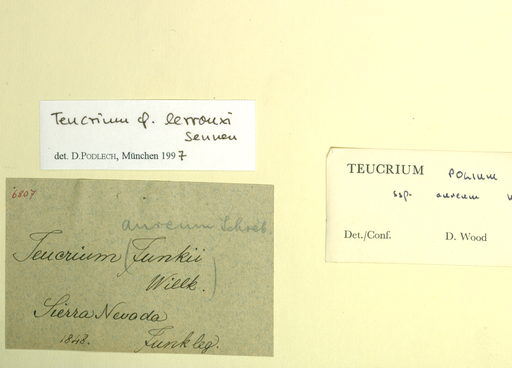 Teucrium cf. lerrouxi
Sennen
det. D.PODLECH, München 1997
TEUCRIUM POLIUM
ssp. aureum
Det./Conf. D. Wood
6807
aureum Schreb.
Teucrium (Funkii
Willk.)
Sierra Nevada
1848. Funk leg.